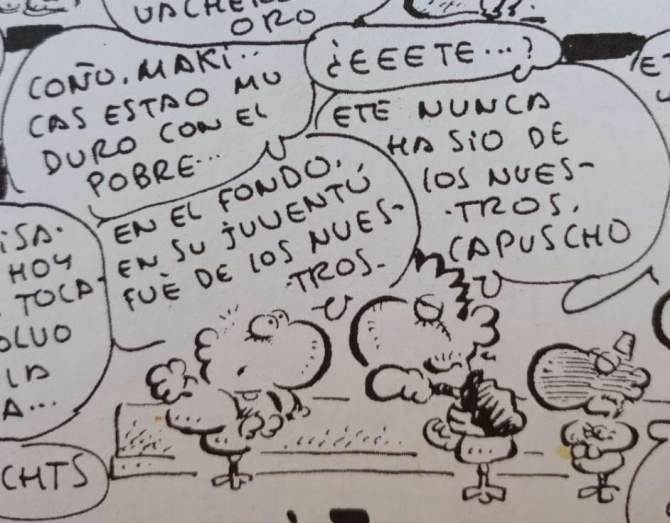 UACHER
ORO
COÑO, MAKI..
CAS ESTAO MU
DURO CON EL
POBRE...
¿EEETE...?
ETE NUNCA
HA SIO DE
LOS NUES-
-TROS,
CAPUSCHO
EN EL FONDO,
EN SU JUVENTÚ
FUÉ DE LOS NUES-
-TROS-
ISA.
HOY
TOCA-
OLVO
LA
A...
CHTS